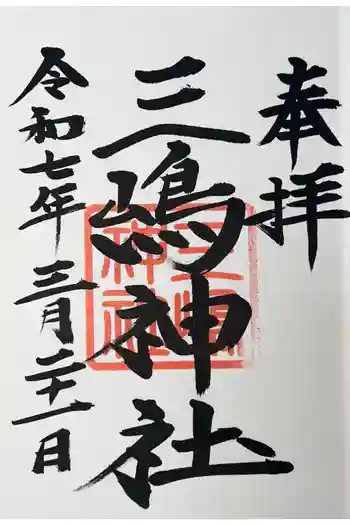 奉拝
三嶋神社
三嶋神社
令和七年 三月二十一日